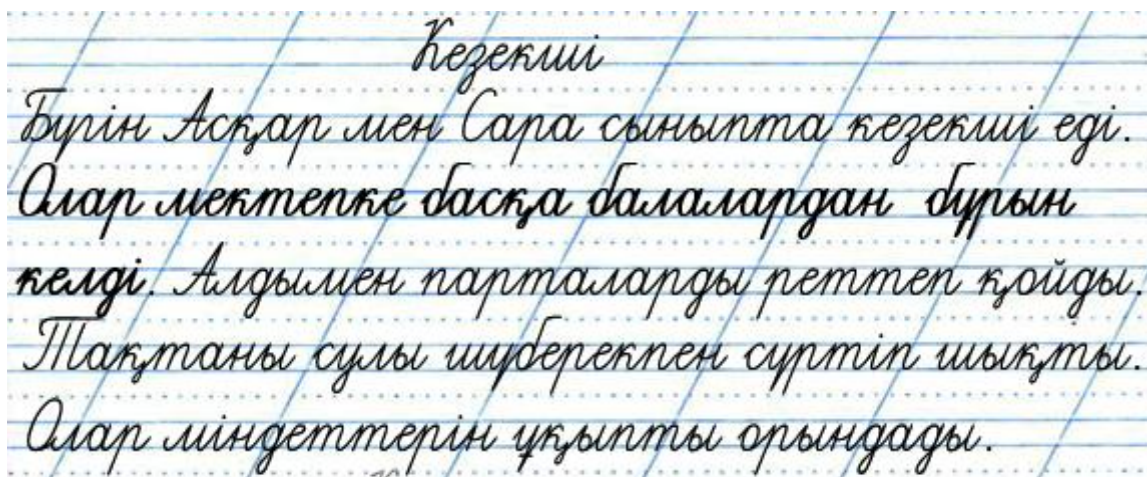 Кезекші
Бүгін Асқар мен Сара сыныпта кезекші еді.
Олар мектепке басқа балалардан бұрын
келді. Алдымен парталарды реттеп қойды.
Тақтаны сулы шүберекпен сүртіп шықты.
Олар міндеттерін ұқыпты орындады.